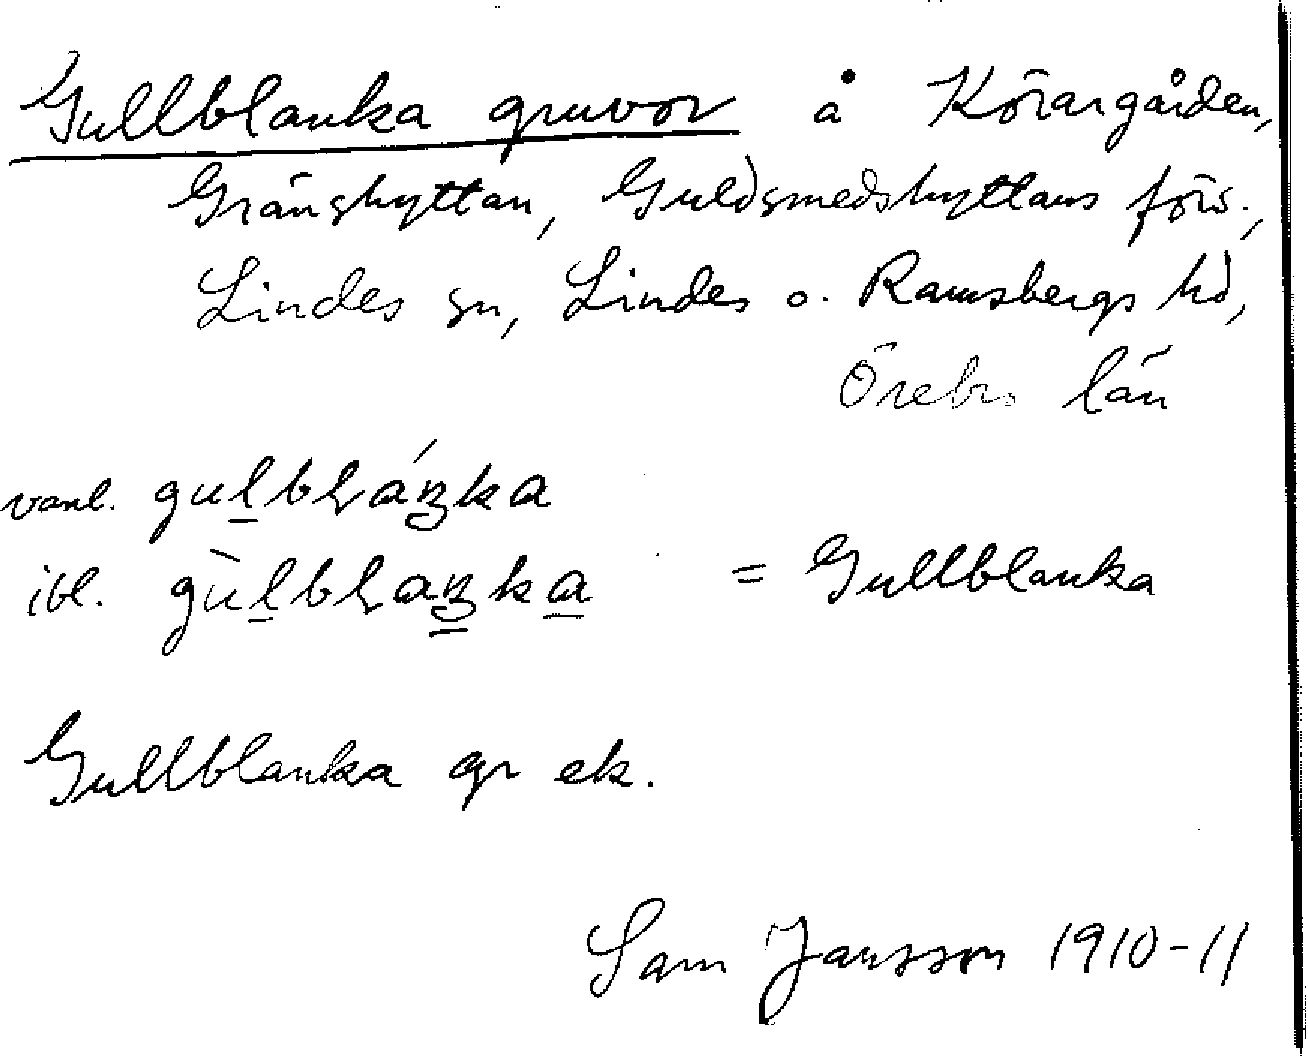 Gullblanka gruvor å Körargården,
Gränshyttan, Guldsmedshyttans förs.,
Lindes sn, Lindes o. Ramsbergs hd,
Örebro län
vanl. gulbláŋka
ibl. gùlblaŋka = Gullblanka
Gullblanka gr ek.
Sam Jansson 1910-11